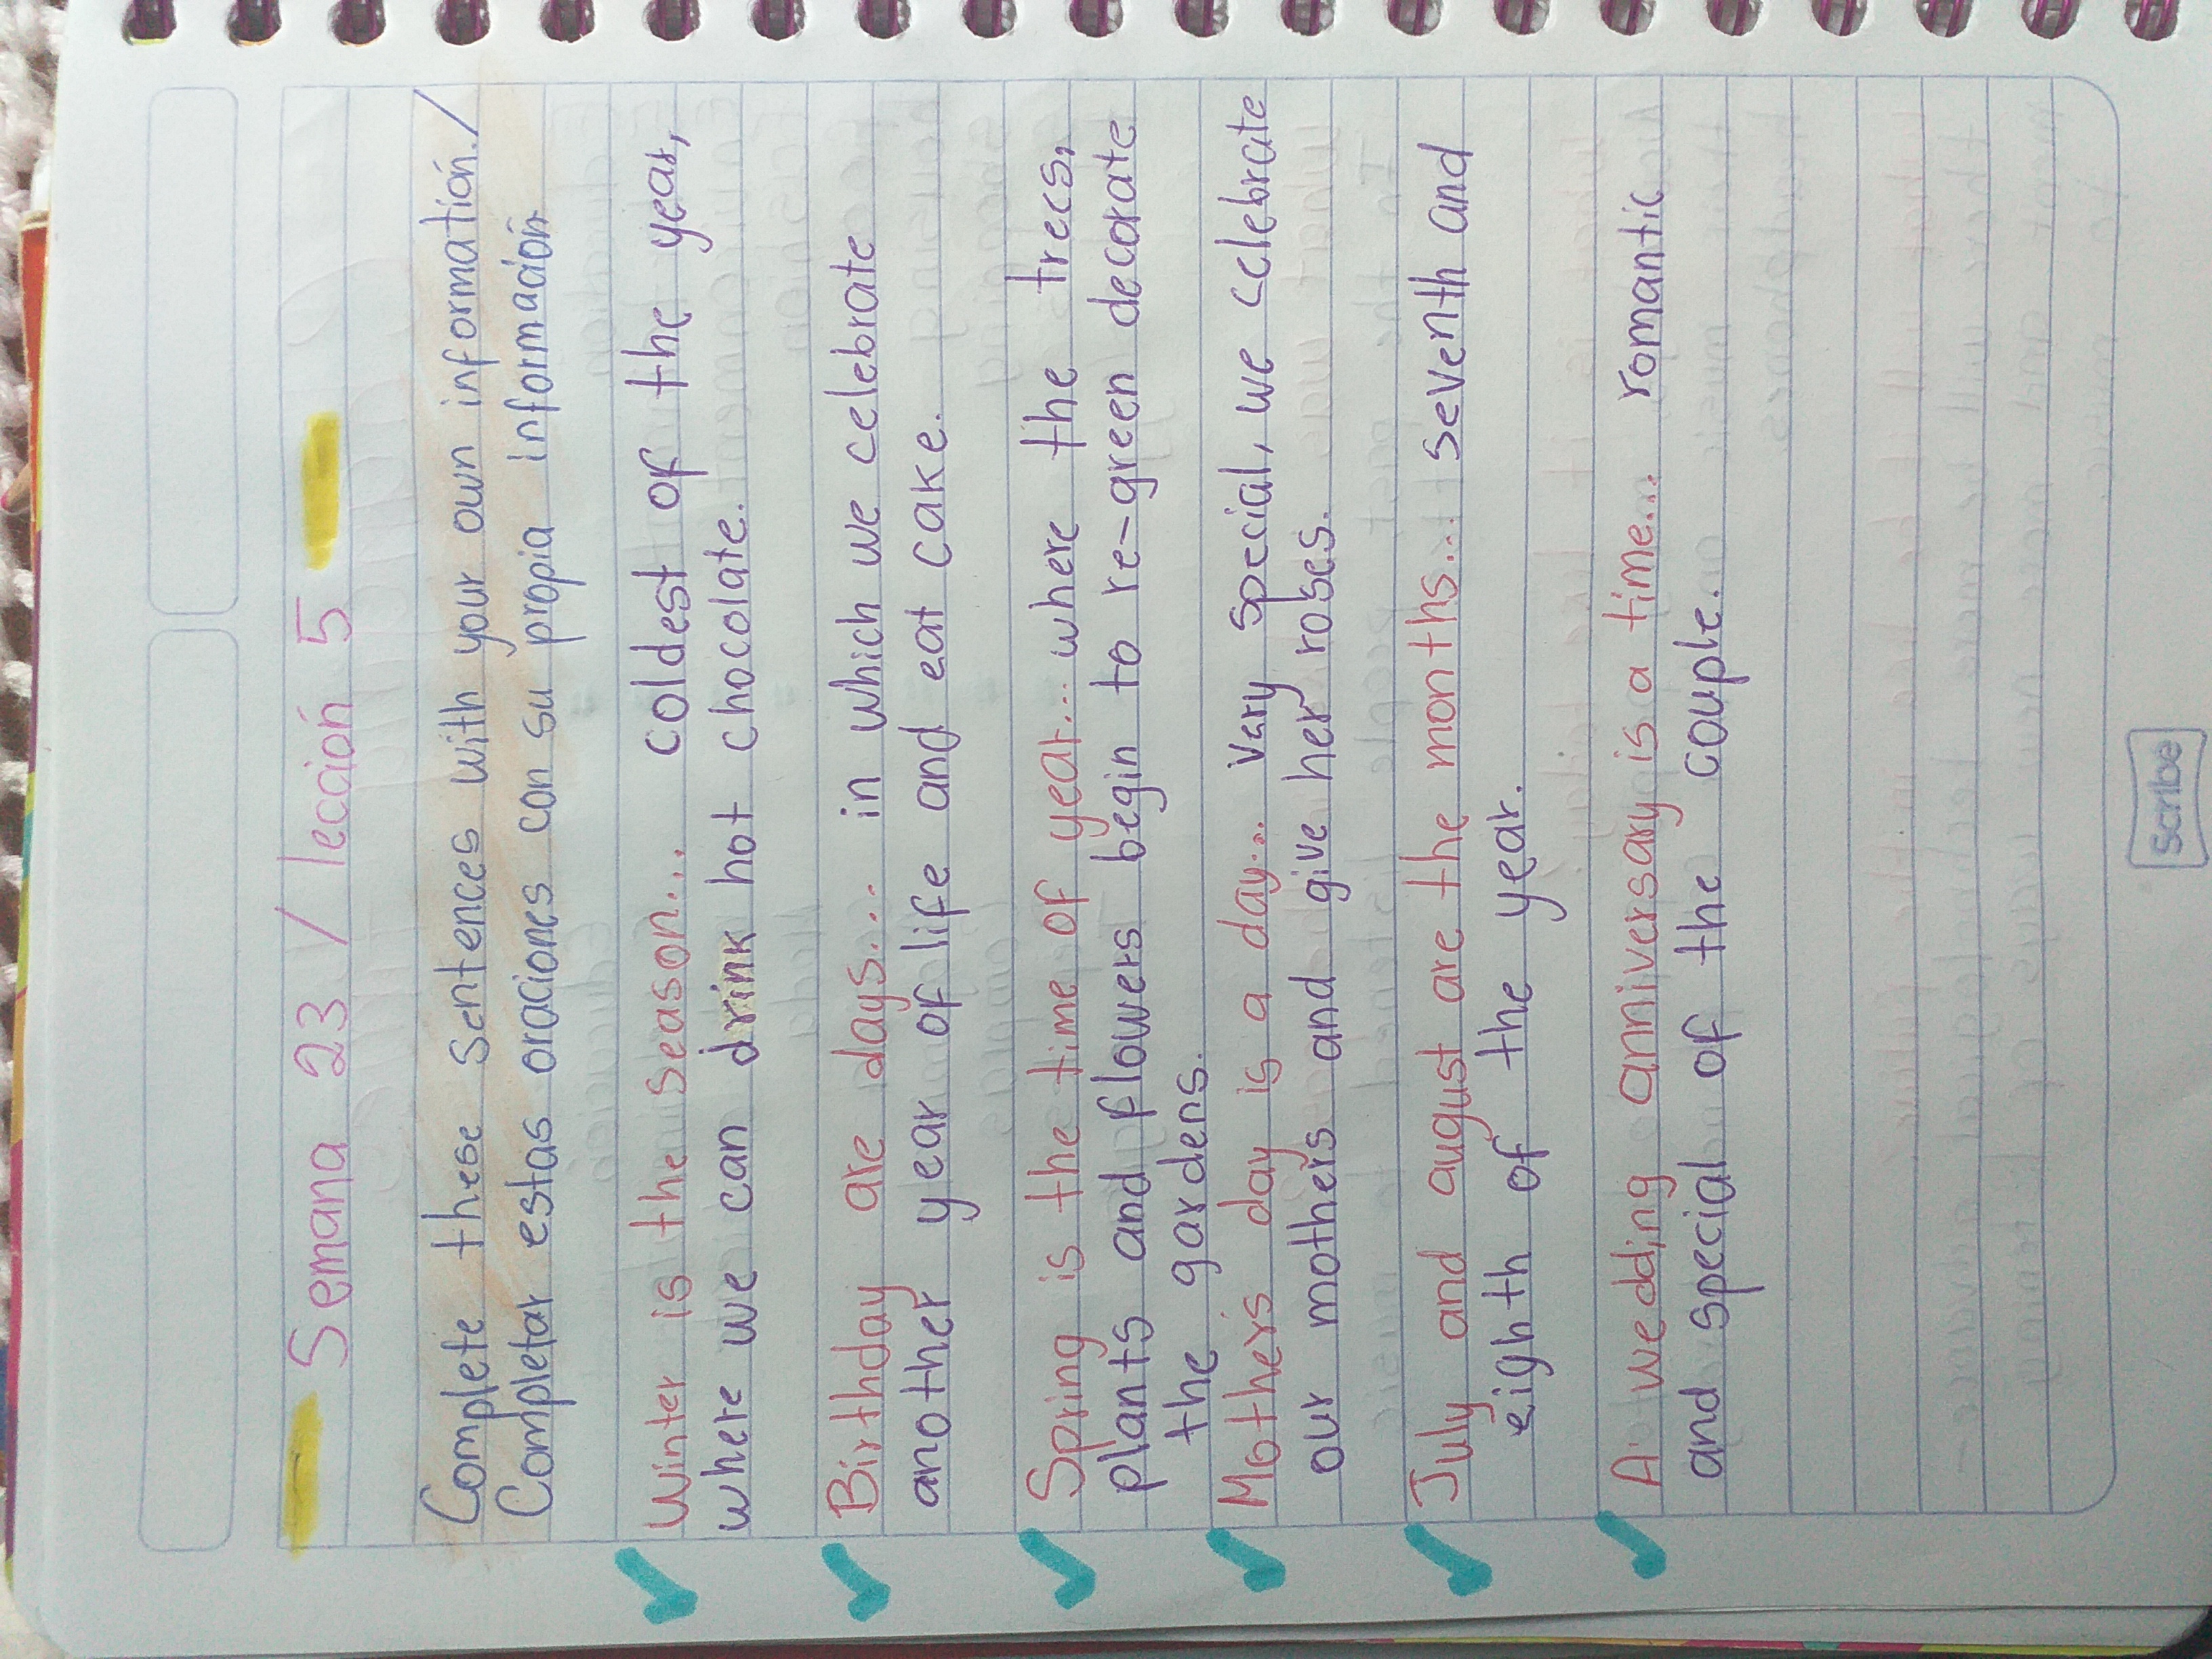 Semana 23 / lección 5
Complete these sentences with your own information. /
Completar estas oraciones con su propia información
Winter is the season... coldest of the year,
where we can drink hot chocolate.
Birthday are days... in which we celebrate
another year of life and eat cake.
Spring is the time of year... where the trees,
plants and flowers begin to re-green decorate
the gardens.
Mother's day is a day... very special, we celebrate
our mothers and give her roses.
July and august are the months... seventh and
eighth of the year.
A wedding anniversary is a time... romantic
and special of the couple.
Scribe